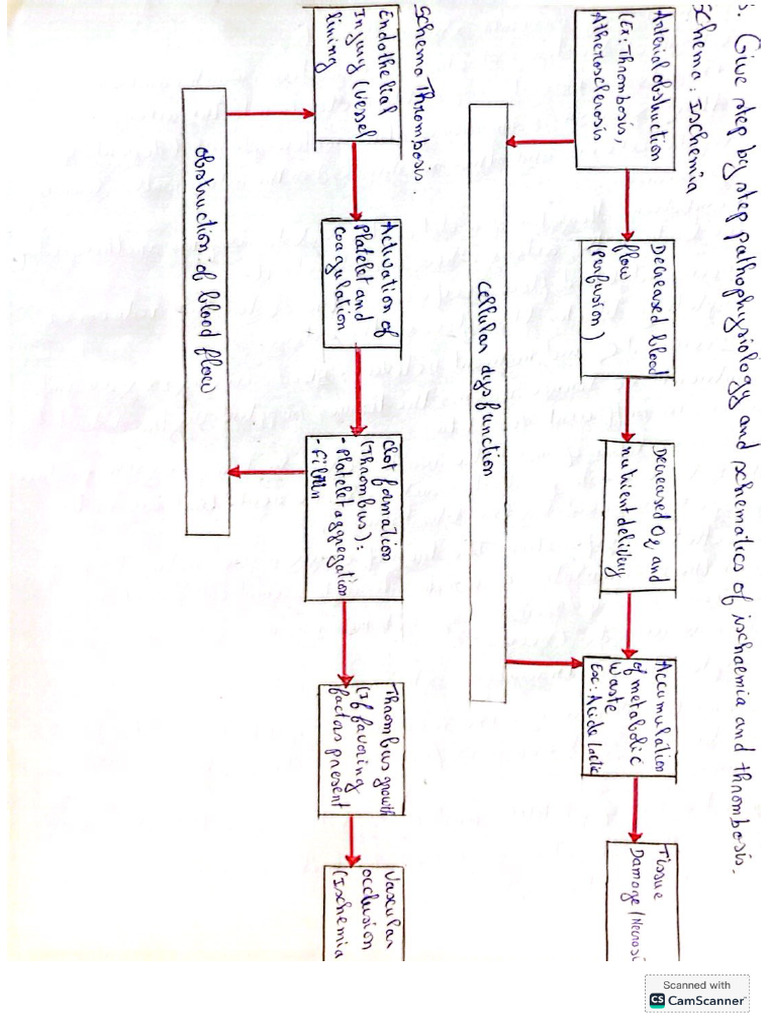 5. Give step by step pathophysiology and schematics of ischaemia and thrombosis.
Schema: Ischemia
Arterial obstruction
(Ex: Thrombosis,
Atherosclerosis
Decreased blood
flow
(perfusion)
Decreased O2 and
nutrient delivery
Accumulation
of metabolic
waste
Ex: Acide lactic
Tissue
Damage (Necrosi
cellular dysfunction
Schema Thrombosis.
Endothelial
Injury (vessel
lining
Activation of
platelet and
coagulation
Clot formation
(Thrombus):
- Platelet aggregation
- Fibrin
Thrombus growth
(If favoring
factors present
Vascular
occlusion
(Ischemia
obstruction of blood flow
Scanned with
CS CamScanner